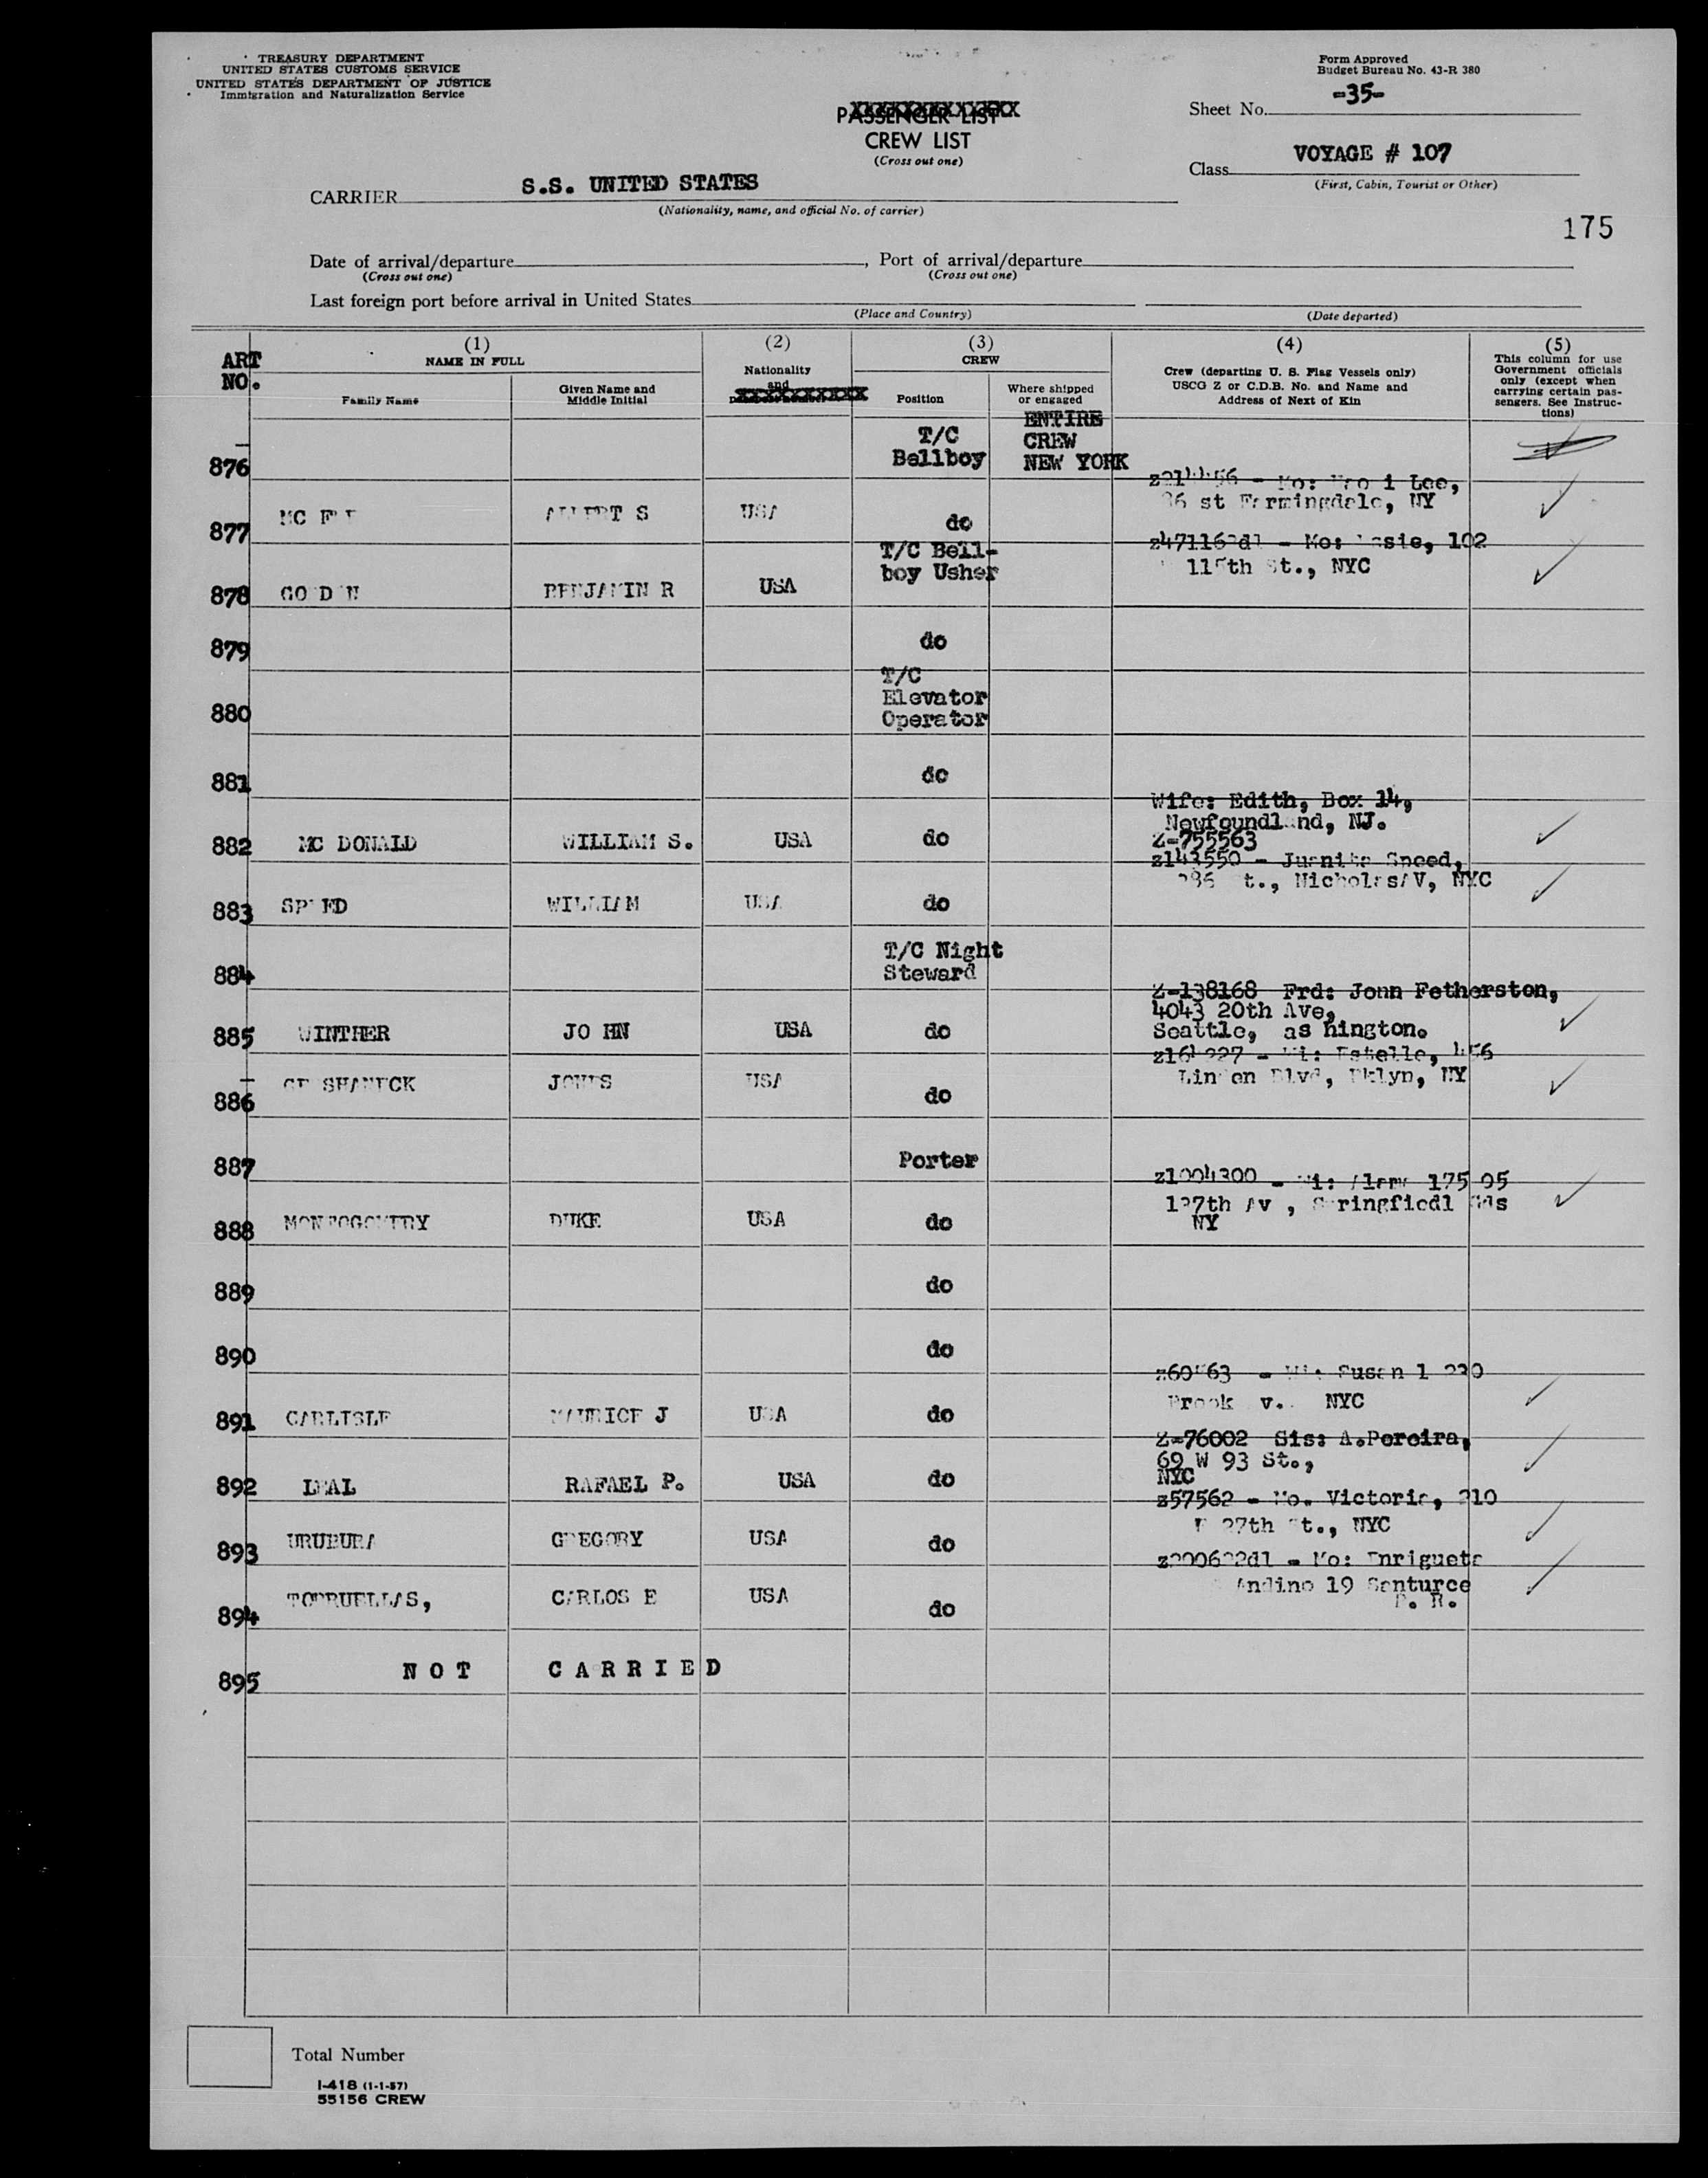 TREASURY DEPARTMENT
UNITED STATES CUSTOMS SERVICE
UNITED STATES DEPARTMENT OF JUSTICE
Immigration and Naturalization Service
Form Approved
Budget Bureau No. 43-R 380
Sheet No. -35-
PASSENGER LIST
CREW LIST
(Cross out one)
Class VOYAGE # 107
(First, Cabin, Tourist or Other)
CARRIER S.S. UNITED STATES
(Nationality, name, and official No. of carrier)
175
Date of arrival/departure , Port of arrival/departure
(Cross out one) (Cross out one)
Last foreign port before arrival in United States
(Place and Country) (Date departed)
ART NO.
(1) NAME IN FULL
Family Name
Given Name and Middle Initial
(2) Nationality and
(3) CREW
Position
Where shipped or engaged
(4) Crew (departing U. S. Flag Vessels only) USCG Z or C.D.B. No. and Name and Address of Next of Kin
(5) This column for use Government officials only (except when carrying certain passengers. See Instructions)
876 T/C Bellboy ENTIRE CREW NEW YORK
877 MC USA do Lee,
st Farmingdale, NY
878 BENJAMIN R USA T/C Bell-boy Usher Mo: 102
115th St., NYC
879 do
880 T/C Elevator Operator
881 do
882 MC DONALD WILLIAM S. USA do Wife: Edith, Box 14,
Newfoundland, NJ.
Z-755563
883 SPEED WILLIAM USA do z143550 - Juanita Speed,
St., Nicholas AV, NYC
884 T/C Night Steward
885 WINTHER JO HN USA do Z-138168 Frd: John Fetherston,
4043 20th Ave,
Seattle, as hington.
886 JONES USA do Wi: Estelle, 456
Linden Blvd, Bklyn, NY
887 Porter
888 DUKE USA do z1004300 - Wi: 175 05
Av , Springfiedl Gds
NY
889 do
890 do
891 CARLISLE MAURICE J USA do Susan
NYC
892 LEAL RAFAEL P. USA do Z-76002 Sis: A.Pereira,
69 W 93 St.,
NYC
893 URUBURA GREGORY USA do z57562 - Mo. Victoria, 210
27th St., NYC
894 TORRUELLAS, CARLOS E USA do Mo: Enrigueta
Andino 19 Santurce
P. R.
895 NOT CARRIED
Total Number
I-418 (1-1-57)
55156 CREW